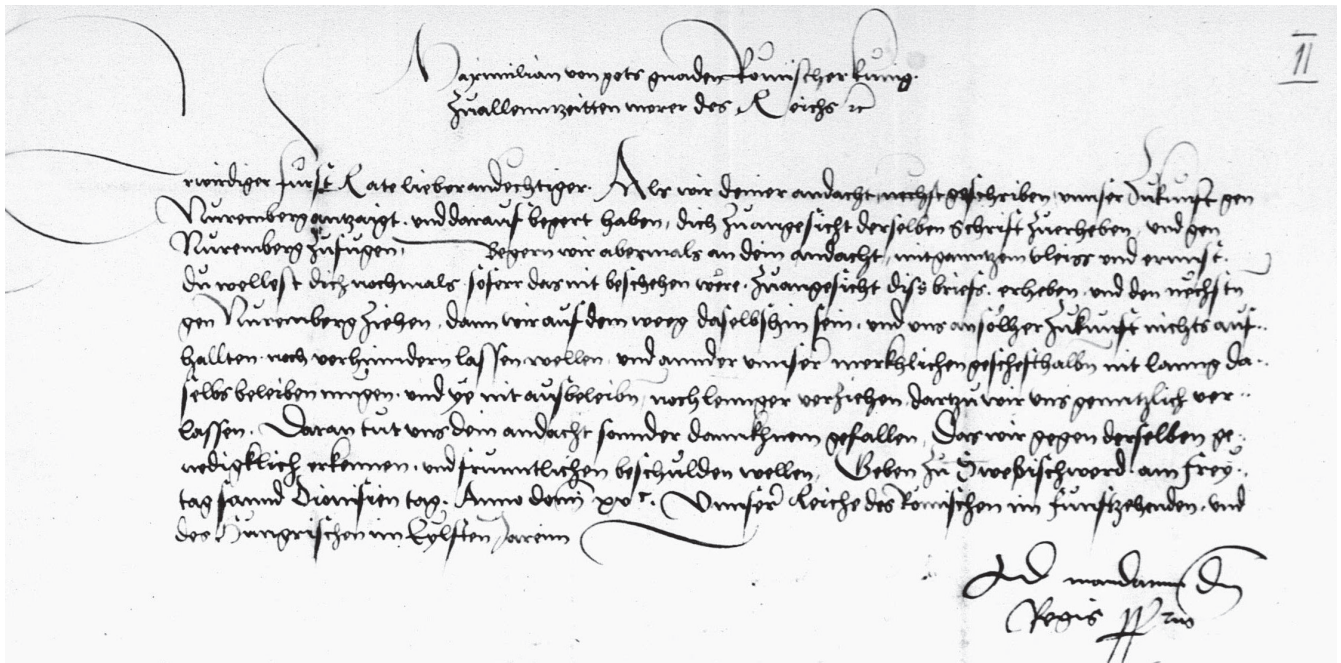 II
Maximilian von gots gnaden Romischer kunig
zuallenntzeitten merer des Reichs ꝛc
Erwirdiger furst Rate lieber andechtiger. Als wir deiner andacht nechst geschriben, unnser Zukunft gen
Nuremberg antzaigt. und darauf begert haben, dich zuangesicht derselben Schrift zuerheben, und gen
Nuremberg zufugen, Begern wir abermals an dein andacht, mit ganntzem vleiss und ernnst.
du wellest dich nochmals, soferr das nit beschehen were. zuangesicht diss briefs. erheben. und den nechstn
gen Nuremberg ziehen, dann wir auf dem weeg daselbshin sein. und uns an solher Zukunft nichts auf..
hallten. noch verhinndern lassen wellen, und annder unnser merkhlichen gescheffthalbn nit lanng da..
selbs beleiben mugen. und ye nit ausbeleibn, noch lennger verziehen, dartzu wir uns genntzlich ver..
lassen. Daran tut uns dein andacht sonnder dannkhnem gefallen, Das wir gegen derselben ge..
nedigklich erkennen. und frunntlichen beschulden wellen, Geben zu Swebischwerd. am frey..
tag sannd Dionisien tag. Anno domini xvᶜ. Unnser Reiche des Romischen im funfftzehenden, und
des Hungrischen im Eylfften Jarenn
Ad mandatum dni
Regis pp